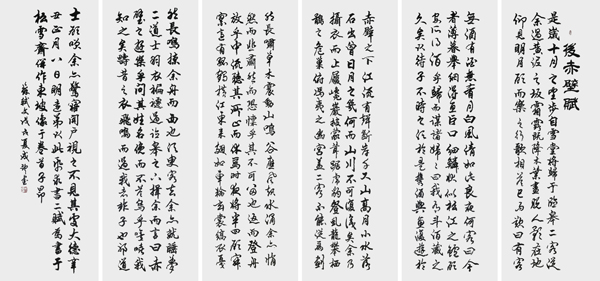 後赤壁賦
是歲十月之望步自雪堂將歸于臨皋二客從
余過黃泥之坂霜露既降木葉盡脫人影在地
仰見明月顧而樂之行歌相答已而歎曰有客
無酒有酒無肴月白風清如此良夜何客曰今
者薄暮舉網得魚巨口細鱗狀似松江之鱸顧
安所得酒乎歸而謀諸婦婦曰我有斗酒藏之
久矣以待子不時之須於是攜酒與魚復遊於
赤壁之下江流有聲斷岸千尺山高月小水落
石出曾日月之幾何而江山不可復識矣余乃
攝衣而上履巉巖披蒙茸踞虎豹登虯龍攀棲
鶻之危巢俯馮夷之幽宮蓋二客不能從焉劃
然長嘯草木震動山鳴谷應風起水涌余亦悄
然而悲肅然而恐凜乎其不可留也返而登舟
放乎中流聽其所止而休焉時夜將半四顧寂
寥適有孤鶴橫江東來翅如車輪玄裳縞衣戛
然長鳴掠余舟而西也須臾客去余亦就睡夢
二道士羽衣翩僊過臨皋之下揖余而言曰赤
壁之遊樂乎問其姓名俛而不答嗚呼噫嘻我
知之矣疇昔之夜飛鳴而過我者非子也耶道
士顧笑余亦驚寤開戶視之不見其處大德辛
丑正月八日明遠弟以此紙求書二賦為書于
松雪齋併作東坡像于卷首子昂
蘇軾文戊戌夏成